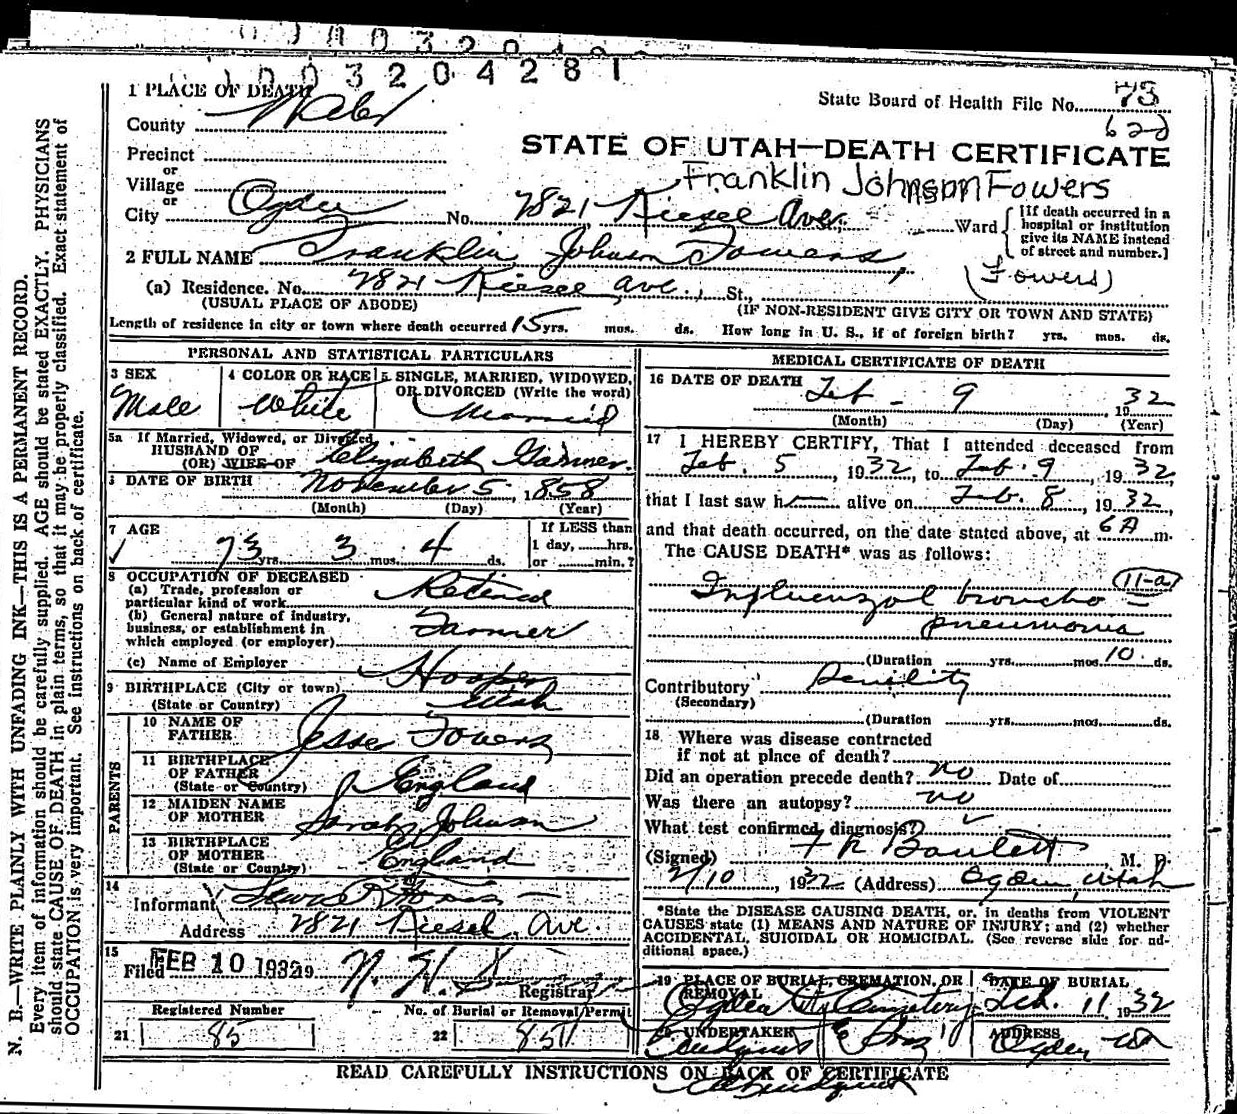 1003204281
1 PLACE OF DEATH
State Board of Health File No. 73
County Weber
622
STATE OF UTAH—DEATH CERTIFICATE
Precinct
or
Village
Franklin Johnson Fowers
or
City Ogden No. 2821 Kiesel Ave. Ward
[If death occurred in a hospital or institution give its NAME instead of street and number.]
2 FULL NAME Franklin Johnson Fowers,
(Fowers)
(a) Residence. No. 2821 Kiesel Ave., St.,
(USUAL PLACE OF ABODE) (IF NON-RESIDENT GIVE CITY OR TOWN AND STATE)
Length of residence in city or town where death occurred 15 yrs. mos. ds. How long in U. S., if of foreign birth? yrs. mos. ds.
PERSONAL AND STATISTICAL PARTICULARS
3 SEX 4 COLOR OR RACE 5 SINGLE, MARRIED, WIDOWED,
OR DIVORCED (Write the word)
Male White Married
5a If Married, Widowed, or Divorced
HUSBAND OF
(OR) WIFE OF Elizabeth Garner.
6 DATE OF BIRTH November 5, 1858
(Month) (Day) (Year)
7 AGE If LESS than
73 yrs. 3 mos. 4 ds. 1 day, hrs.
or min.?
8 OCCUPATION OF DECEASED
(a) Trade, profession or
particular kind of work Retired
(b) General nature of industry,
business, or establishment in
which employed (or employer) Farmer
(c) Name of Employer
9 BIRTHPLACE (City or town) Hooper
(State or Country) Utah
PARENTS
10 NAME OF
FATHER Jesse Fowers
11 BIRTHPLACE
OF FATHER
(State or Country) England
12 MAIDEN NAME
OF MOTHER Sarah Johnson
13 BIRTHPLACE
OF MOTHER
(State or Country) England
14
Informant
Address 2821 Kiesel Ave.
15
Filed FEB 10 1932 19 Registrar
Registered Number No. of Burial or Removal Permit
21 85 22 851
MEDICAL CERTIFICATE OF DEATH
16 DATE OF DEATH Feb - 9 1932
(Month) (Day) (Year)
17 I HEREBY CERTIFY, That I attended deceased from
Feb. 5, 1932, to Feb. 9, 1932,
that I last saw h alive on Feb. 8, 1932,
and that death occurred, on the date stated above, at 6 A m.
The CAUSE DEATH* was as follows:
11-a
Influenzal broncho-
pneumonia
(Duration yrs. mos. 10 ds.
Contributory Senility
(Secondary)
(Duration yrs. mos. ds.
18 Where was disease contracted
if not at place of death?
Did an operation precede death? no Date of
Was there an autopsy? no
What test confirmed diagnosis?
(Signed) M. D.
2/10, 1932 (Address) Ogden, Utah
*State the DISEASE CAUSING DEATH, or, in deaths from VIOLENT
CAUSES state (1) MEANS AND NATURE OF INJURY; and (2) whether
ACCIDENTAL, SUICIDAL OR HOMICIDAL. (See reverse side for ad-
ditional space.)
19 PLACE OF BURIAL, CREMATION, OR REMOVAL DATE OF BURIAL
Ogden Cemetery Feb. 11 1932
20 UNDERTAKER ADDRESS
Lindquist & Bros Ogden Ut
READ CAREFULLY INSTRUCTIONS ON BACK OF CERTIFICATE
N. B.—WRITE PLAINLY WITH UNFADING INK—THIS IS A PERMANENT RECORD.
Every item of information should be carefully supplied. AGE should be stated EXACTLY. PHYSICIANS
should state CAUSE OF DEATH in plain terms, so that it may be properly classified. Exact statement of
OCCUPATION is very important. See instructions on back of certificate.